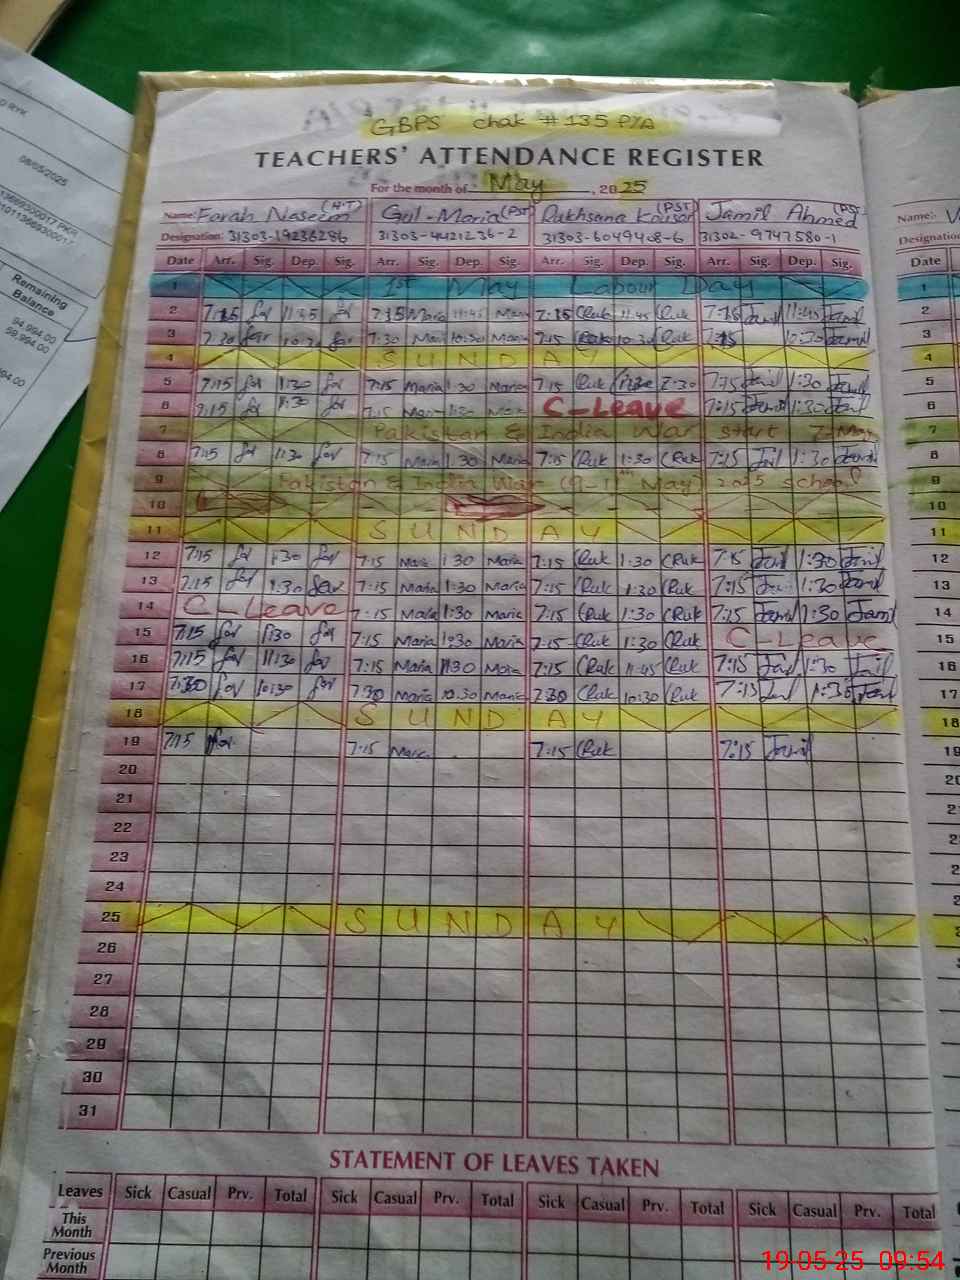 GBPS chak # 135 P/A
TEACHERS' ATTENDANCE REGISTER
For the month of May, 2025
Name: Farah Naseem (H.T) Gul-Maria (PST) Rukhsana Kousor (PST) Jamil Ahmed (PST
Designation: 31303-19236286 31303-4421236-2 31303-6049408-6 31302-9747580-1
Date Arr. Sig. Dep. Sig. Arr. Sig. Dep. Sig. Arr. Sig. Dep. Sig. Arr. Sig. Dep. Sig.
1 1st May Labour Day
2 7:15 11:45 7:15 Maria 11:45 Maria 7:15 Ruk 11:45 Ruk 7:15 Jamil 11:45 Jamil
3 7:30 far 10:30 far 7:30 Maria 10:30 Maria 7:15 Ruk 10:30 Ruk 7:15 10:30 Jamil
4 SUNDAY
5 7:15 far 1:30 far 7:15 Maria 1:30 Maria 7:15 Ruk 7:15 Jamil 1:30 Jamil
6 7:15 far 1:30 far 7:15 Maria 1:30 Maria C-Leave 7:15 Jamil 1:30 Jamil
7 Pakistan & India War start 7-May
8 7:15 far 1:30 far 7:15 Maria 1:30 Maria 7:15 Ruk 1:30 Ruk 7:15 Jamil 1:30 Jamil
9 Pakistan & India War May) 2025 school
10
11 SUNDAY
12 7:15 far 1:30 far 7:15 Maria 1:30 Maria 7:15 Ruk 1:30 Ruk 7:15 Jamil 1:30 Jamil
13 7:15 far 1:30 far 7:15 Maria 1:30 Maria 7:15 Ruk 1:30 Ruk 7:15 Jamil 1:30 Jamil
14 C-Leave 7:15 Maria 1:30 Maria 7:15 Ruk 1:30 Ruk 7:15 Jamil 1:30 Jamil
15 7:15 far 1:30 far 7:15 Maria 1:30 Maria 7:15 Ruk 1:30 Ruk C-Leave
16 7:15 far 11:30 far 7:15 Maria 11:30 Maria 7:15 Ruk 11:45 Ruk 7:15 Jamil 1:30 Jamil
17 7:30 far 10:30 far 7:30 Maria 10:30 Maria 7:30 Ruk 10:30 Ruk 7:15 Jamil 1:30 Jamil
18 SUNDAY
19 7:15 far 7:15 Maria 7:15 Ruk 7:15 Jamil
20
21
22
23
24
25 SUNDAY
26
27
28
29
30
31
STATEMENT OF LEAVES TAKEN
Leaves Sick Casual Prv. Total Sick Casual Prv. Total Sick Casual Prv. Total Sick Casual Prv. Total
This Month
Previous Month
08/05/2025
Remaining
Balance
94,994.00
59,994.00
Name:
Designation
Date Arr.
19-05-25 09:54